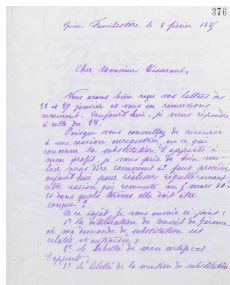 376
Guise Familistère le 2 février 188
Cher Monsieur Tisserant,
Nous avons bien reçu vos lettres des
26 et 27 janvier et vous en remercions
vivement. Aujourd'hui, je viens répondre
à celle du 28.
Puisque vous conseillez de recourir
à une cession enregistrée, en ce qui
concerne la substitution d'apports à
mon profit, je vous prie de bien
nous dire comment il faut procéder
aujourd'hui pour réaliser régulièrement
cette cession qui remonte au 1 mars 80.
et dans quels termes elle doit être
conçue ?
À ce sujet, je vous envoie ci-joint :
1° la délibération du conseil de gérance
où ma demande de substitution est
relatée et autorisée ;
2° Le libellé de mon certificat
d'apport ;
3° Le libellé de la mention de substitution